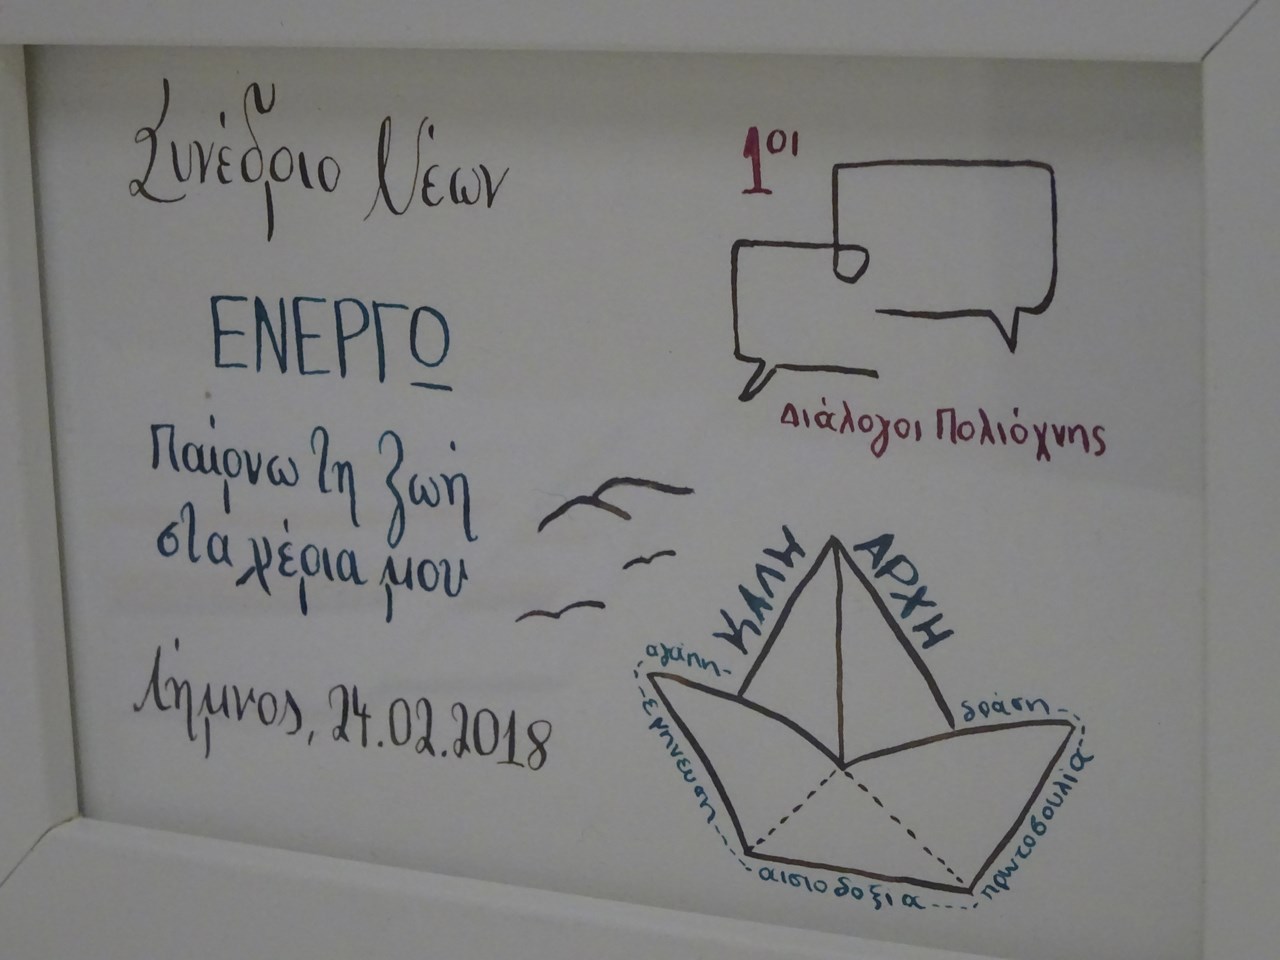 Συνέδριο Νέων
ΕΝΕΡΓΩ
Παίρνω τη ζωή
στα χέρια μου
Λήμνος, 24.02.2018
1οι
Διάλογοι Πολιόχνης
ΚΑΛΗ ΑΡΧΗ
αγάπη
έμπνευση
αισιοδοξία
πρωτοβουλία
δράση